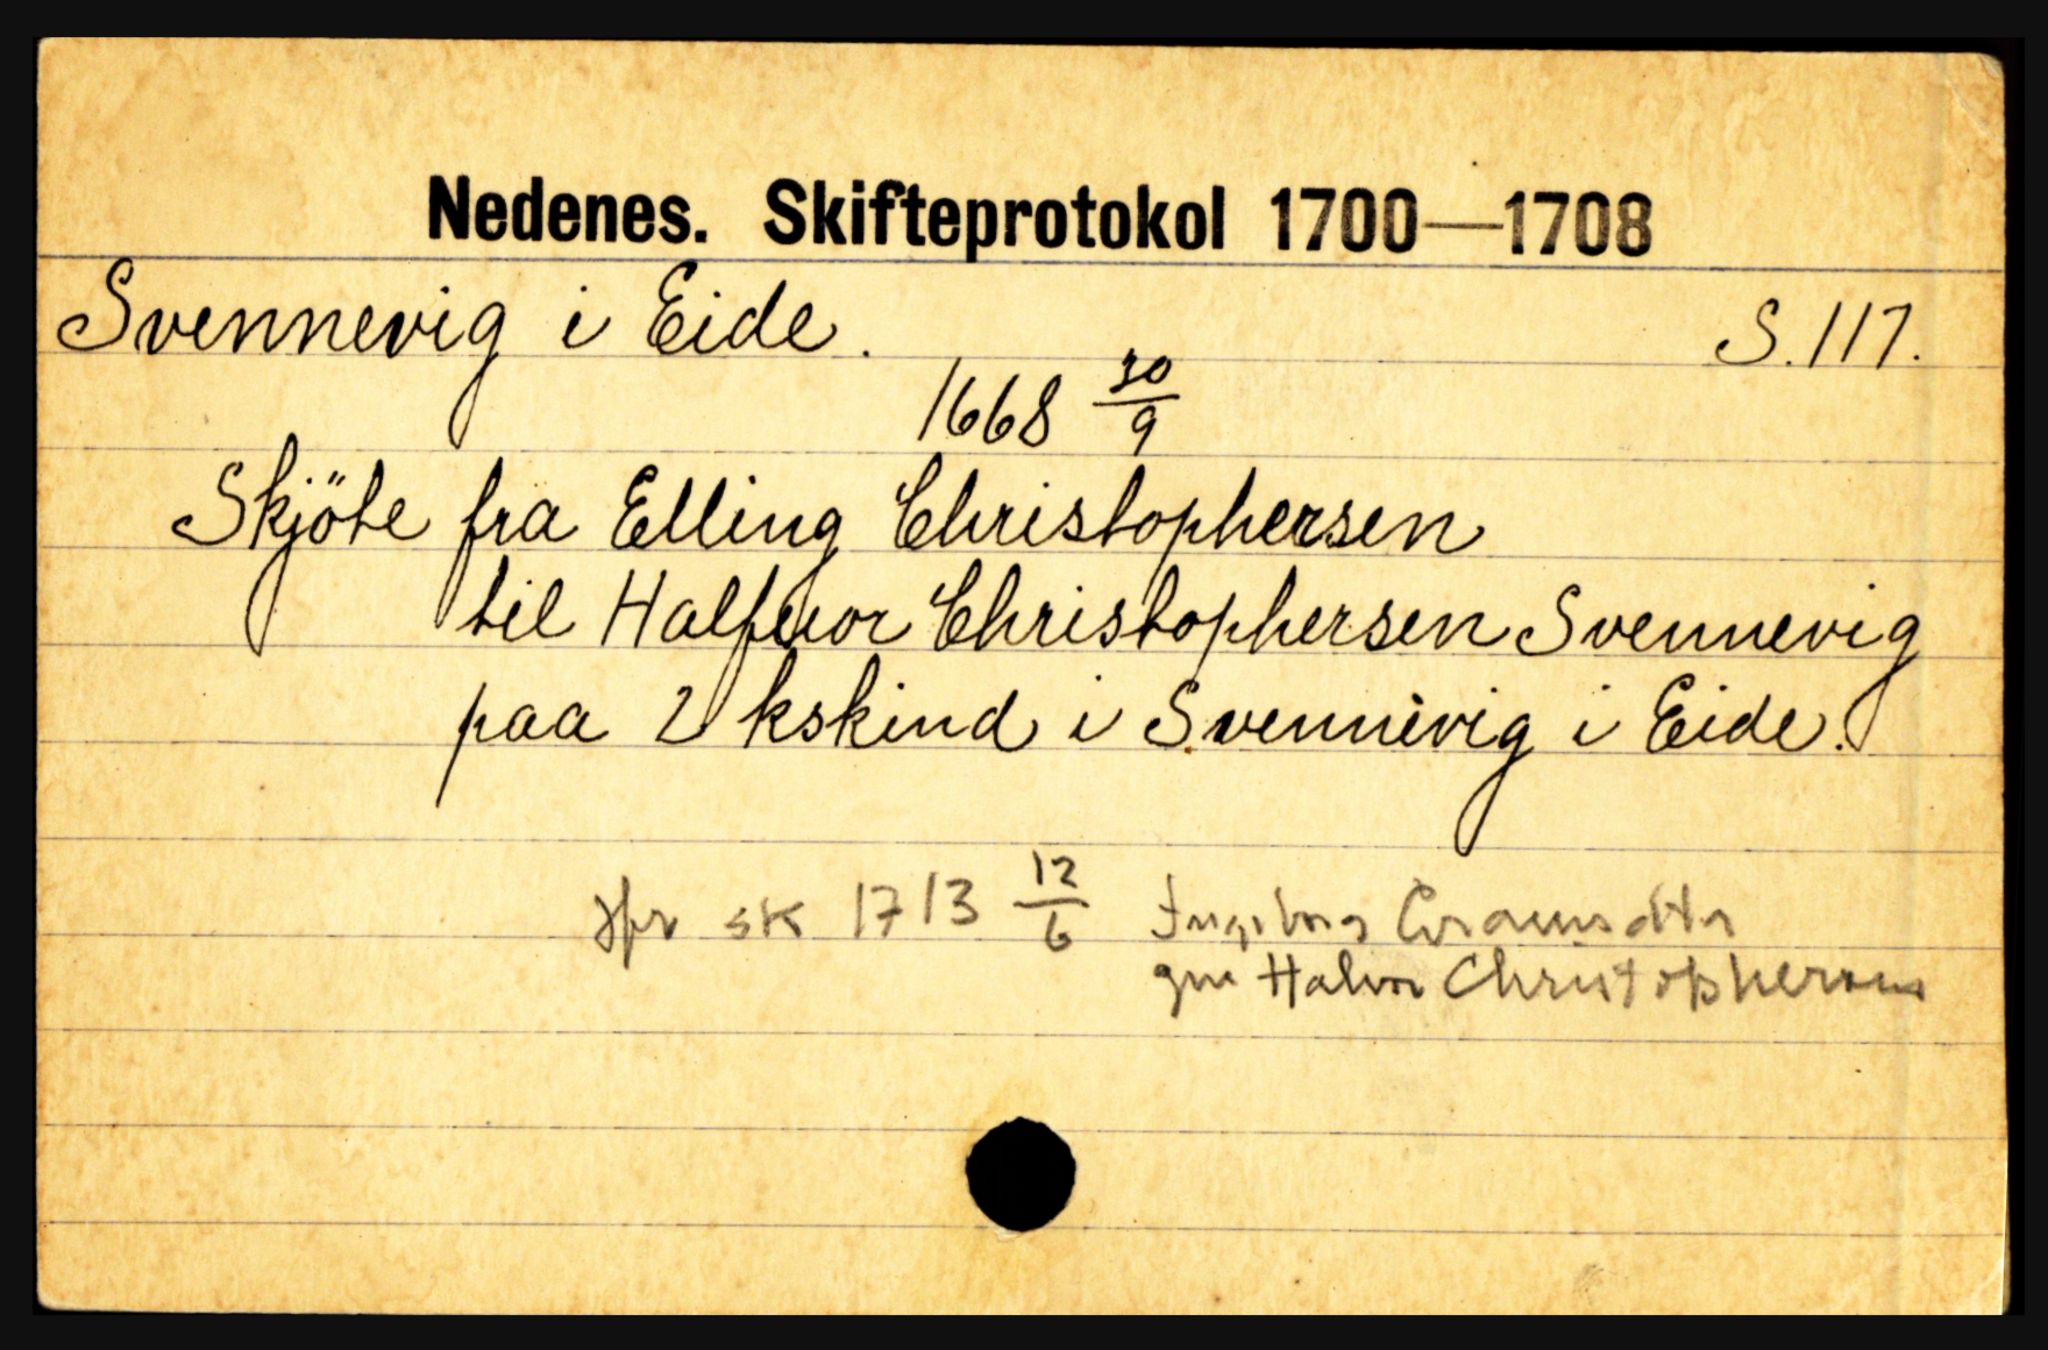 Nedenes. Skifteprotokol 1700—1708
Svennevig i Eide. S. 117.
1668 30/9
Skjöte fra Elling Christophersen
til Halfuor Christophersen Svennevig
paa 2 kskind i Svennevig i Eide.
Jfr sk 1713 12/6 Ingeborg
gm Halvor Christophersen